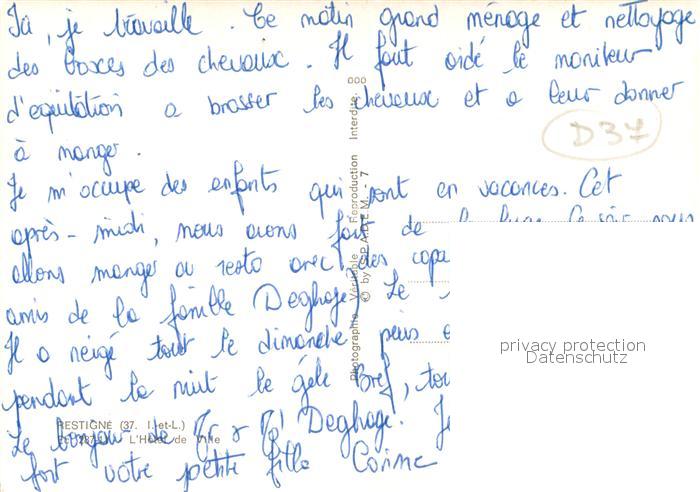 Ici, je travaille. Ce matin grand ménage et nettoyage
des boxes des chevaux. Il faut aidé le moniteur
d'équitation a brosser les chevaux et a leur donner
à manger.
D37
Je m'occupe des enfants qui sont en vacances. Cet
après-midi, nous avons fait de la luge. Ce soir nous
allons manger au resto avec des copa
amis de la famille Deghage. Le
Il a neigé tout le dimanche puis
pendant la nuit le gèle. Bref, tou
Le bonjour de Mr & Deghage. Je
fort votre petite fille Corinne
RESTIGNÉ (37. I.-et-L.)
L'Hôtel de Ville
Photographie Véritable Reproduction Interdite.
© by S.P.A.D.E.M. 7
privacy protection
Datenschutz